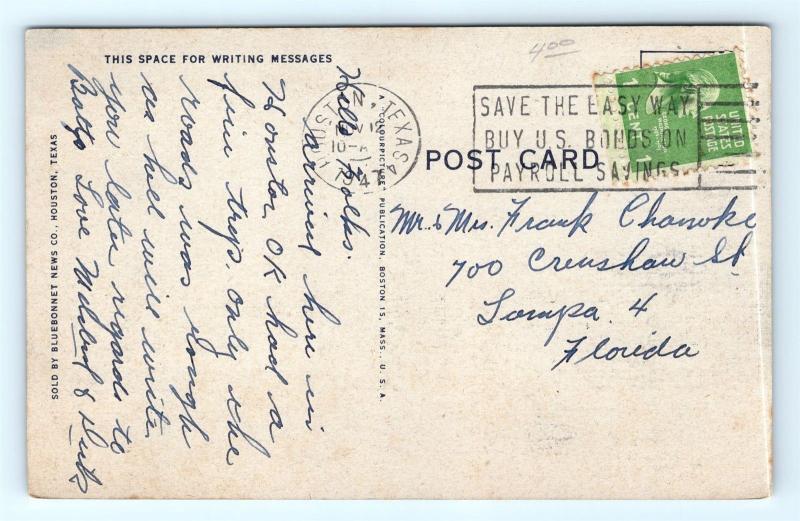 THIS SPACE FOR WRITING MESSAGES
Hello Folks.
arrived here in
Houston, OK had a
fine trip, only the
roads was rough
as hell will write
you later regards to
Love &
SOLD BY BLUEBONNET NEWS CO., HOUSTON, TEXAS
"COLOURPICTURE" PUBLICATION, BOSTON 15, MASS., U.S.A.
4 00
TEXAS
1947
SAVE THE EASY WAY
BUY U.S. BONDS ON
PAYROLL SAVINGS
UNITED
STATES
POSTAGE
1 CENT 1
POST CARD
Mr. & Mrs. Frank
700 Crenshaw St
Tampa 4
Florida